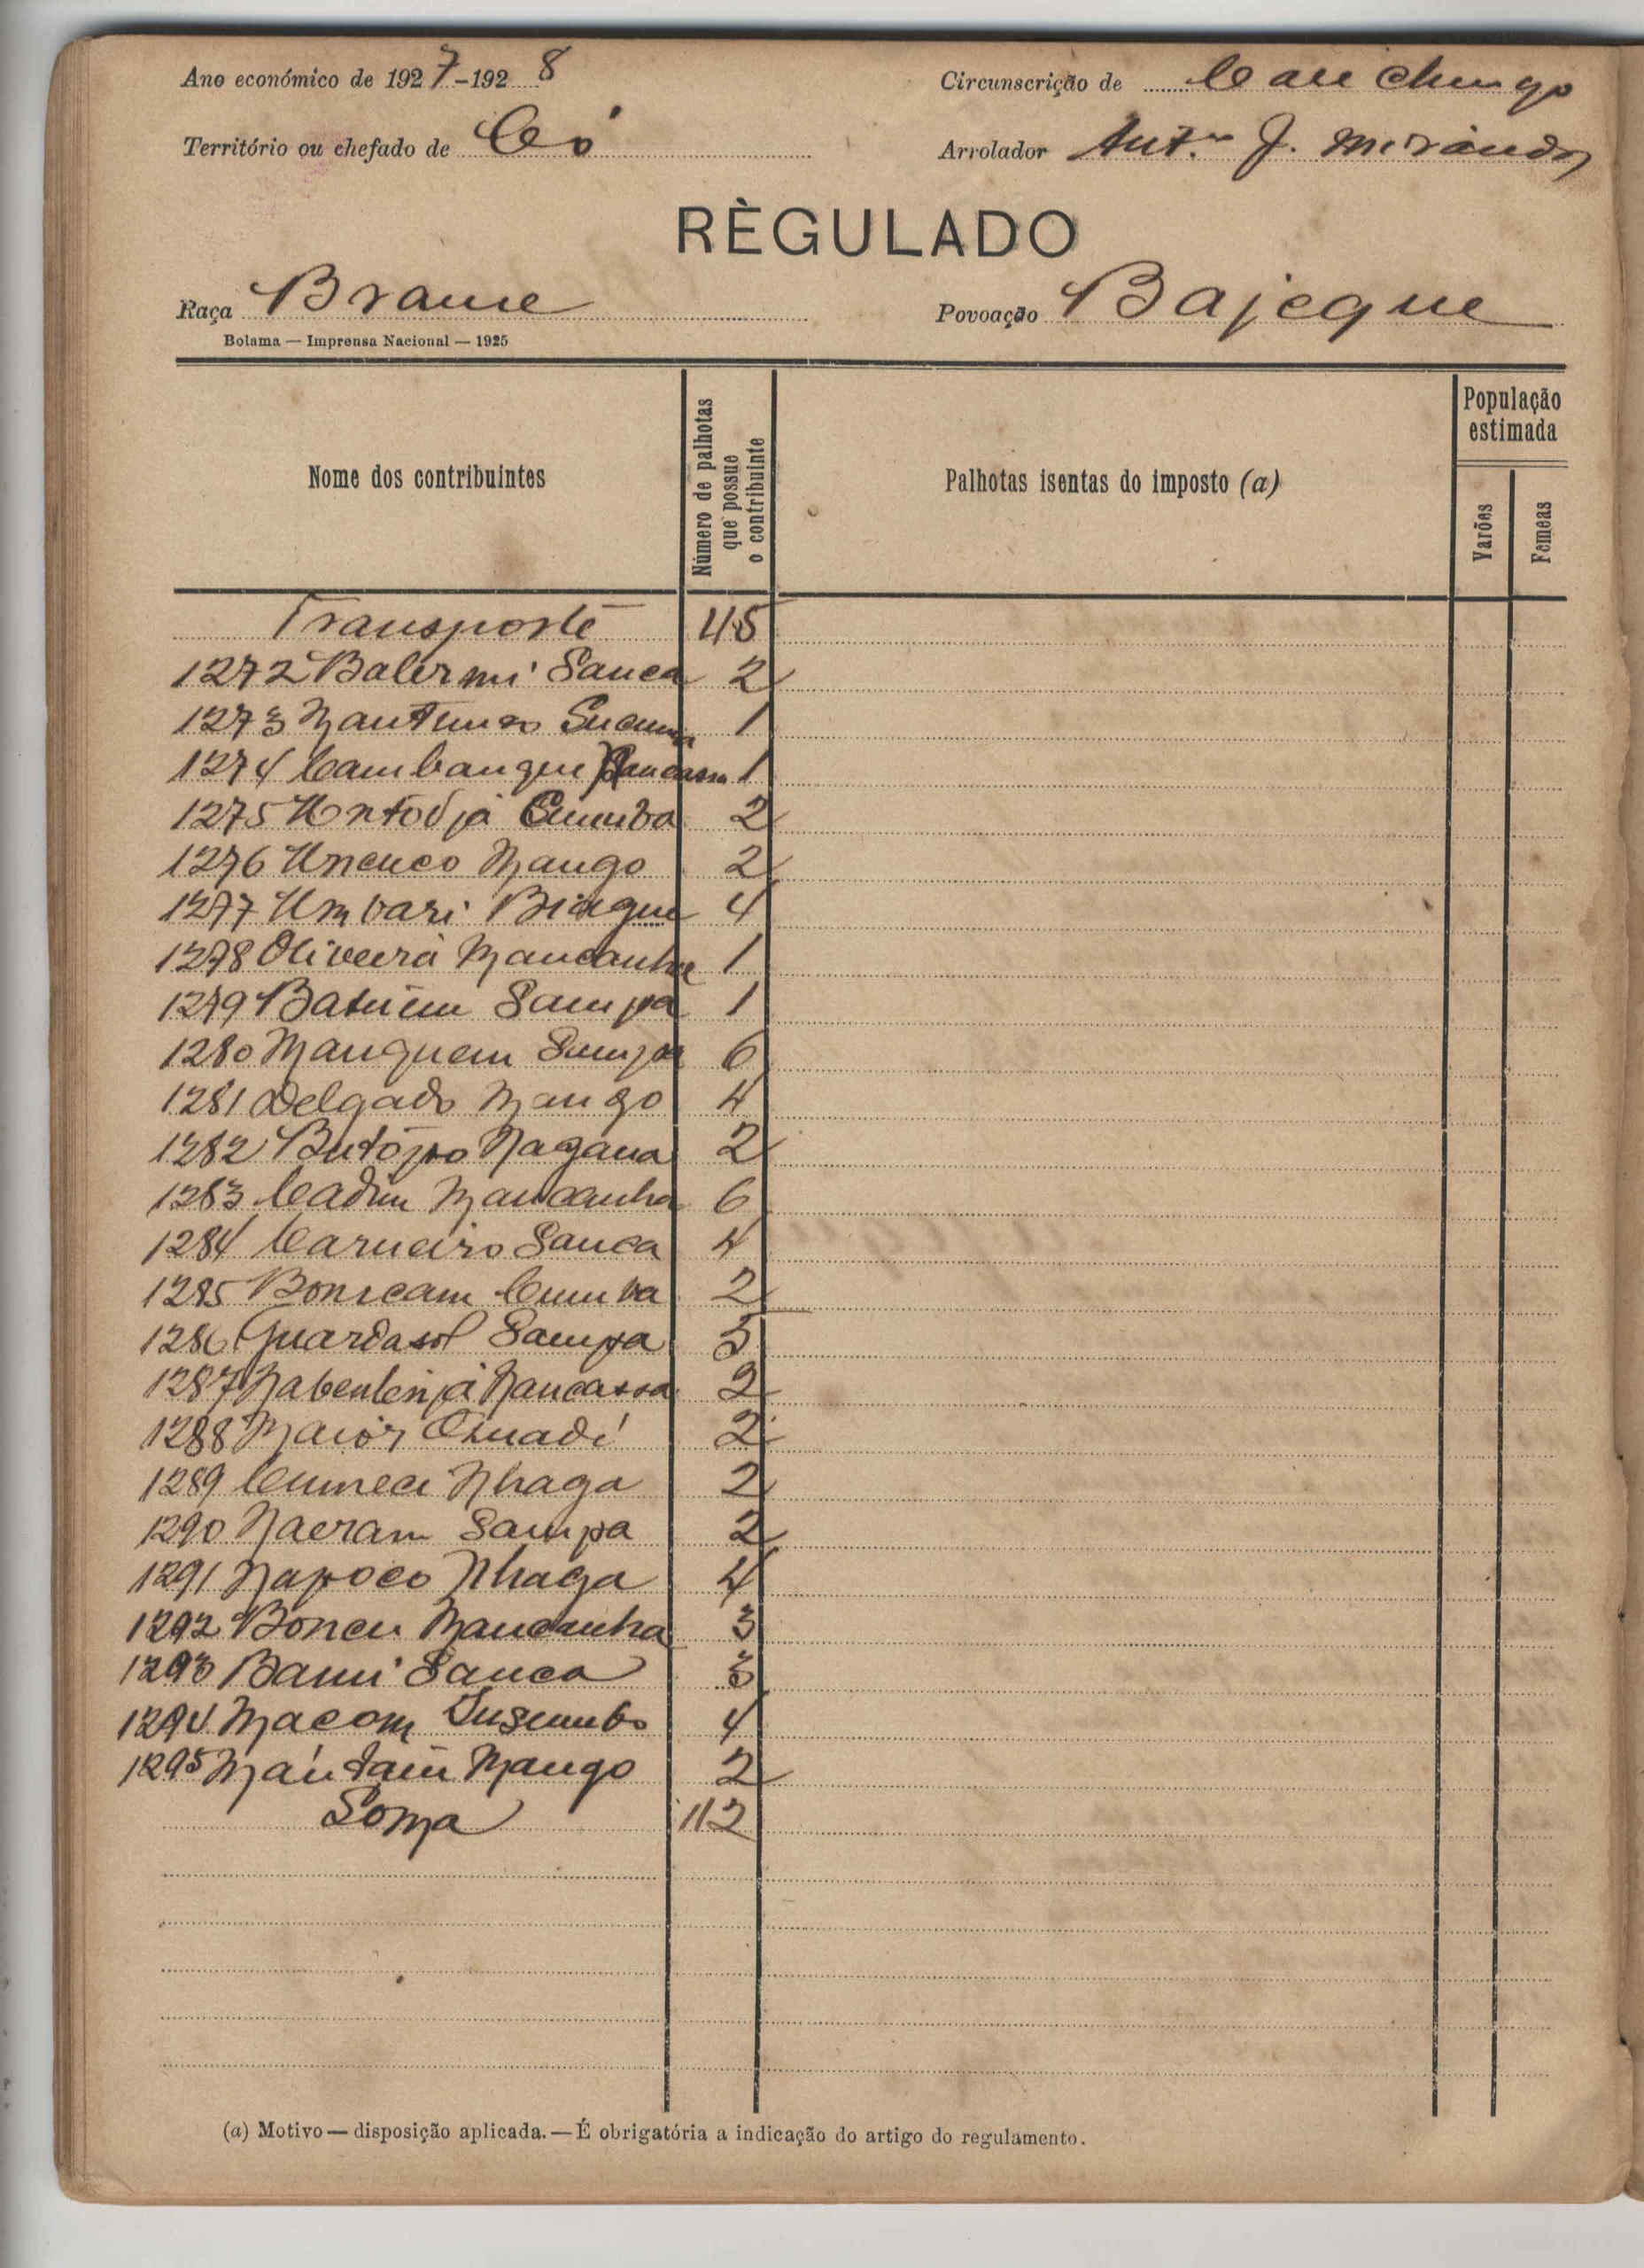 Ano económico de 1927-1928
Circunscrição de Canchungo
Território ou chefado de Có
Arrolador Ant.º J. Miranda
RÈGULADO
Raça Brame
Povoação Bajeque
Bolama — Imprensa Nacional — 1925
Nome dos contribuintes
Número de palhotas que possue o contribuinte
Palhotas isentas do imposto (a)
População estimada
Varões
Femeas
Transporte 45
1272 Balermi Sanca 2
1273 1
1274 Cambangue 1
1275 2
1276 Uncuco Mango 2
1277 Umbari 4
1278 Oliveira Mancanha 1
1279 Sampa 1
1280 Manguem Sampa 6
1281 Delgado Mango 4
1282 Butôpo Nagana 2
1283 Mancanha 6
1284 Carneiro Sanca 4
1285 Bonicam Cumba 2
1286 Guardasol Sampa 5
1287 Nancassa 2
1288 Maior 2
1289 Nhaga 2
1290 Sampa 2
1291 Napoco Nhaga 4
1292 Boncu Mancanha 3
1293 Bami Sanca 3
1294 Macom 4
1295 Mango 2
Soma 112
(a) Motivo — disposição aplicada. — É obrigatória a indicação do artigo do regulamento.